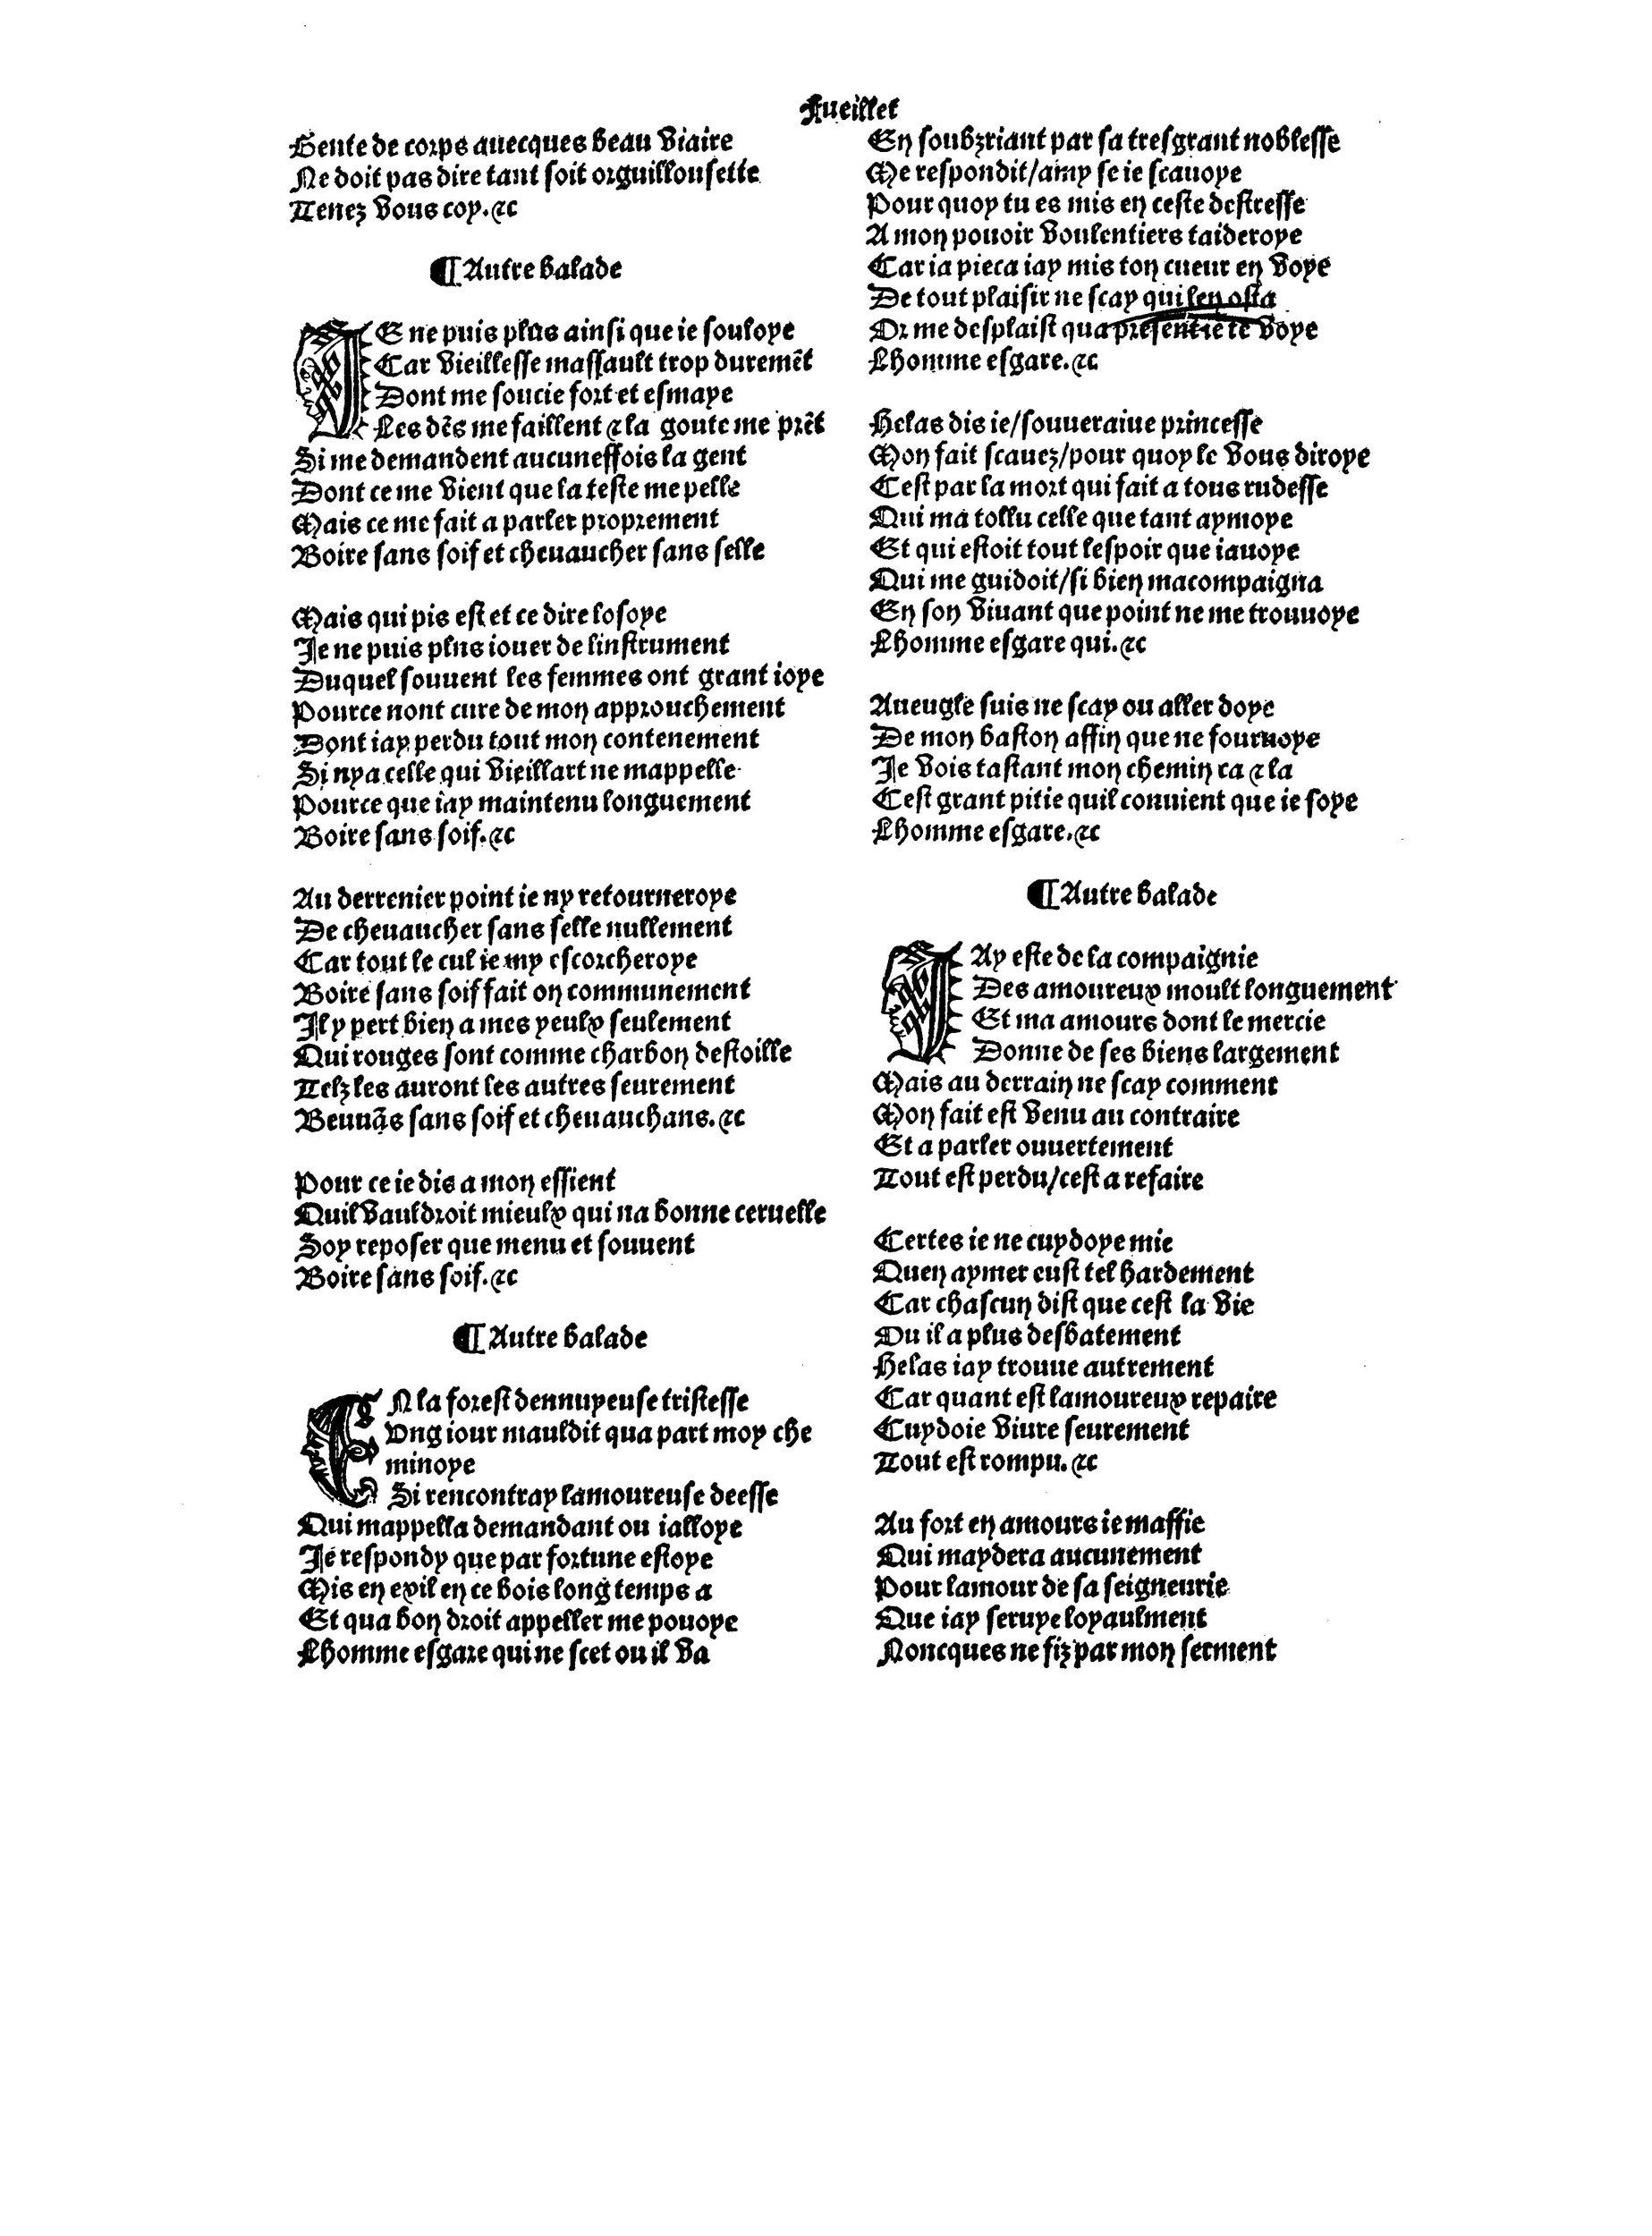 Fueillet
Gente de corps auecques beau viaire
Ne doit pas dire tant soit orguillousette
Tenez vous coy.⁊c
¶ Autre balade
IE ne puis plus ainsi que ie souloye
Car vieillesse massault trop duremẽt
Dont me soucie fort et esmaye
Les dẽs me faillent ⁊ la goute me prẽt
Si me demandent aucuneffois la gent
Dont ce me vient que la teste me pelle
Mais ce me fait a parler proprement
Boire sans soif et cheuaucher sans selle
Mais qui pis est et ce dire losoye
Je ne puis plus iouer de linstrument
Duquel souuent les femmes ont grant ioye
Pource nont cure de mon approuchement
Dont iay perdu tout mon contenement
Si nya celle qui vieillart ne mappelle
Pource que iay maintenu longuement
Boire sans soif.⁊c
Au derrenier point ie ny retourneroye
De cheuaucher sans selle nullement
Car tout le cul ie my escorcheroye
Boire sans soif fait on communement
Il y pert bien a mes yeulx seulement
Qui rouges sont comme charbon destoille
Telz les auront les autres seurement
Beuuãs sans soif et cheuauchans.⁊c
Pour ce ie dis a mon essient
Quil vauldroit mieulx qui na bonne ceruelle
Soy reposer que menu et souuent
Boire sans soif.⁊c
¶ Autre balade
EN la forest dennuyeuse tristesse
Vng iour mauldit qua part moy che
minoye
Si rencontray lamoureuse deesse
Qui mappella demandant ou ialloye
Je respondy que par fortune estoye
Mis en exil en ce bois long temps a
Et qua bon droit appeller me pouoye
Lhomme esgare qui ne scet ou il va
En soubzriant par sa tresgrant noblesse
Me respondit/amy se ie scauoye
Pour quoy tu es mis en ceste destresse
A mon pouoir voulentiers taideroye
Car ia pieca iay mis ton cueur en voye
De tout plaisir ne scay qui len osta
Or me desplaist qua present ie te voye
Lhomme esgare.⁊c
Helas dis ie/souueraiue princesse
Mon fait scauez/pour quoy le vous diroye
Cest par la mort qui fait a tous rudesse
Qui ma tollu celle que tant aymoye
Et qui estoit tout lespoir que iauoye
Qui me guidoit/si bien macompaigna
En son viuant que point ne me trouuoye
Lhomme esgare qui.⁊c
Aueugle suis ne scay ou aller doye
De mon baston affin que ne fouruoye
Je vois tastant mon chemin ca ⁊ la
Cest grant pitie quil conuient que ie soye
Lhomme esgare.⁊c
¶ Autre balade
IAy este de la compaignie
Des amoureux moult longuement
Et ma amours dont le mercie
Donne de ses biens largement
Mais au derrain ne scay comment
Mon fait est venu au contraire
Et a parler ouuertement
Tout est perdu/cest a refaire
Certes ie ne cuydoye mie
Quen aymer eust tel hardement
Car chascun dist que cest la vie
Ou il a plus desbatement
Helas iay trouue autrement
Car quant est lamoureux repaire
Cuydoie viure seurement
Tout est rompu.⁊c
Au fort en amours ie maffie
Qui maydera aucunement
Pour lamour de sa seigneurie
Que iay seruye loyaulment
Noncques ne fiz par mon serment